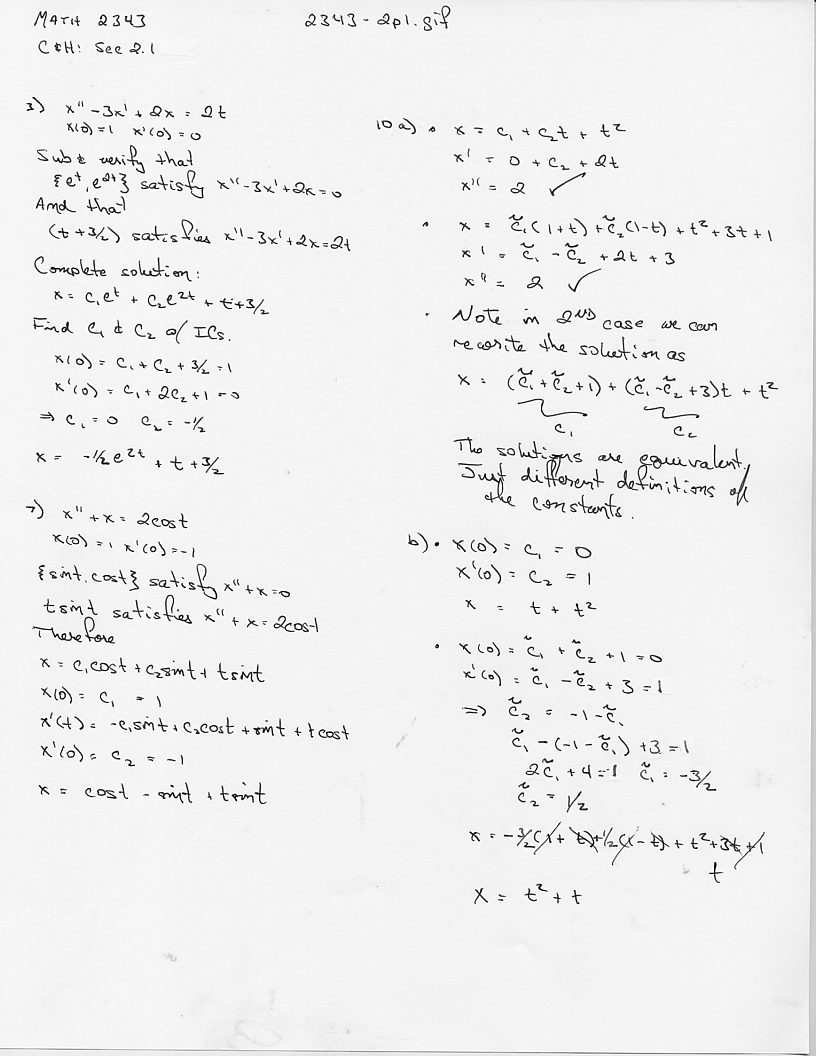 MATH 2343
2343-2p1.gif
C&H: Sec 2.1
3) x'' - 3x' + 2x = 2t
x(0)=1 x'(0)=0
Subt verify that
{e^t, e^2t} satisfy x'' - 3x' + 2x = 0
And that
(t + 3/2) satisfies x'' - 3x' + 2x = 2t
Complete solution:
x = c₁e^t + c₂e^2t + t + 3/2
Find c₁ & c₂ w/ ICs.
x(0) = c₁ + c₂ + 3/2 = 1
x'(0) = c₁ + 2c₂ + 1 = 0
⇒ c₁ = 0 c₂ = -1/2
x = -1/2 e^2t + t + 3/2
7) x'' + x = 2cost
x(0) = 1 x'(0) = -1
{sint, cost} satisfy x'' + x = 0
tsint satisfies x'' + x = 2cost
Therefore
x = c₁cost + c₂sint + tsint
x(0) = c₁ = 1
x'(t) = -c₁sint + c₂cost + sint + tcost
x'(0) = c₂ = -1
x = cost - sint + tsint
10 a) • x = c₁ + c₂t + t²
x' = 0 + c₂ + 2t
x'' = 2 ✓
• x = c̃₁(1+t) + c̃₂(1-t) + t² + 3t + 1
x' = c̃₁ - c̃₂ + 2t + 3
x'' = 2 ✓
• Note in 2ND case we can
rewrite the solution as
x = (c̃₁ + c̃₂ + 1) + (c̃₁ - c̃₂ + 3)t + t²
c₁ c₂
The solutions are equivalent.
Just different definitions of
the constants.
b) • x(0) = c₁ = 0
x'(0) = c₂ = 1
x = t + t²
• x(0) = c̃₁ + c̃₂ + 1 = 0
x'(0) = c̃₁ - c̃₂ + 3 = 1
⇒ c̃₂ = -1 - c̃₁
c̃₁ - (-1 - c̃₁) + 3 = 1
2c̃₁ + 4 = 1 c̃₁ = -3/2
c̃₂ = 1/2
x = -3/2(1 + t) + 1/2(1 - t) + t² + 3t + 1
t
x = t² + t